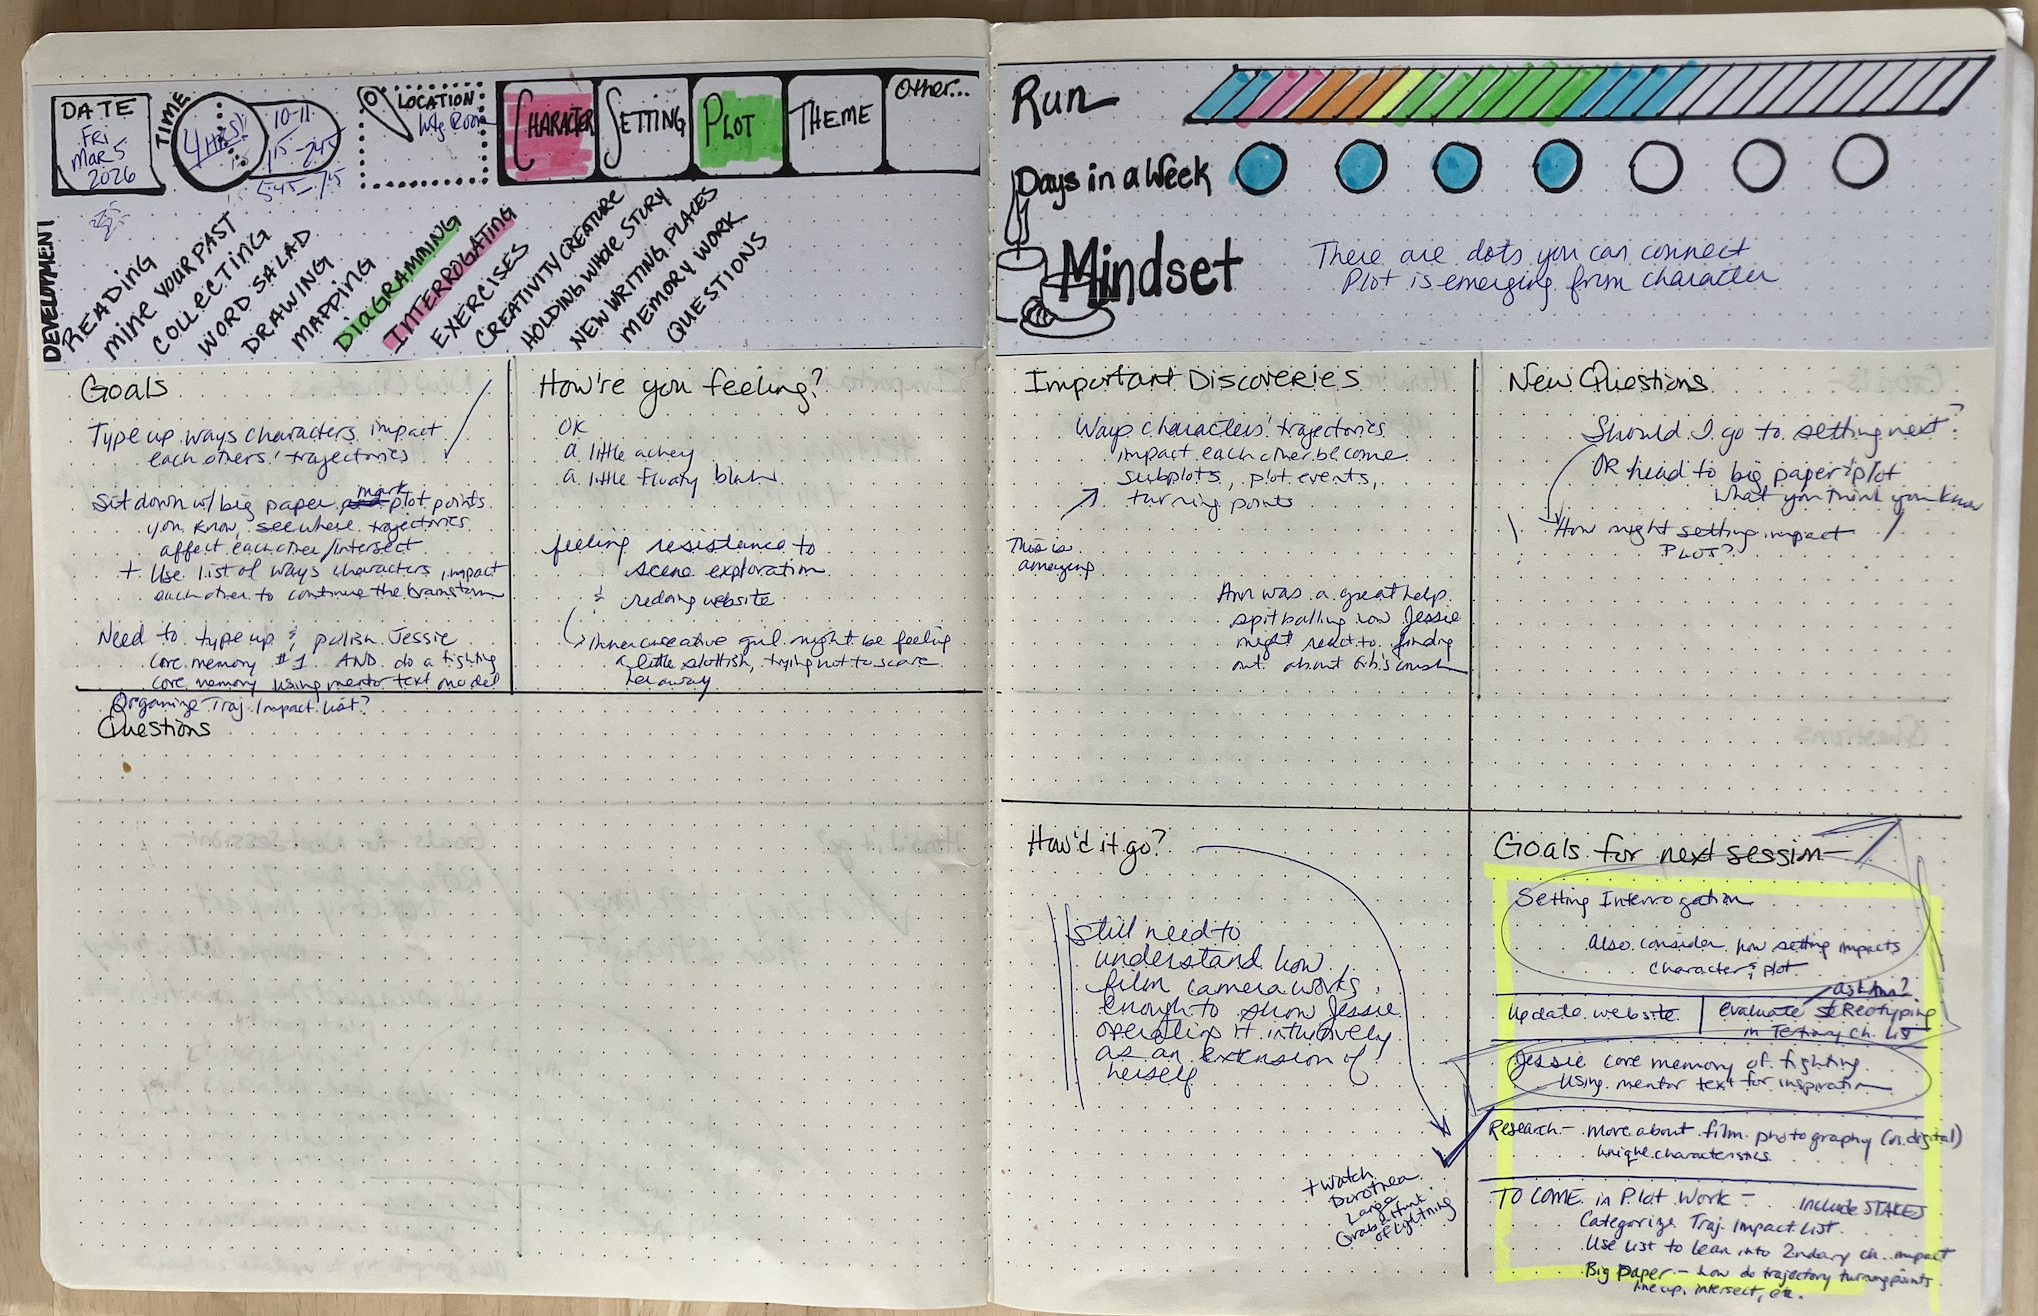 DATE
Fri
Mar 5
2026
TIME
4 HRS!
10-11
1:15-2:45
5:45-7:15
LOCATION
Wtg Room
CHARACTER
SETTING
PLOT
THEME
Other...
DEVELOPMENT
READING
MINE YOUR PAST
COLLECTING
WORD SALAD
DRAWING
MAPPING
DIAGRAMMING
INTERROGATING
EXERCISES
CREATIVITY CREATURE
HOLDING WHOLE STORY
NEW WRITING PLACES
MEMORY WORK
QUESTIONS
Goals
Type up ways characters impact
each others' trajectories
Sit down w/ big paper mark plot points
you know, see where trajectories
affect each other/intersect
+ Use list of ways characters impact
each other to continue the brainstorm
Need to type up & polish Jessie
core memory #1 AND do a fighting
core memory using mentor text model
Organize Traj. Impact List?
How're you feeling?
OK
a little achey
a little floaty blah
feeling resistance to
scene exploration
& redoing website
Inner creative girl might be feeling
a little skittish, trying not to scare
her away
Questions
Run
Days in a Week
Mindset
There are dots you can connect
Plot is emerging from character
Important Discoveries
Ways characters' trajectories
impact each other become
subplots, plot events,
turning points
This is
amazing
Ann was a great help
spitballing how Jessie
might react to finding
out about Gib's crush
New Questions
Should I go to setting next?
OR head to big paper & plot
what you think you know
How might setting impact
PLOT?
How'd it go?
Still need to
understand how
film camera works
enough to show Jessie
operating it intuitively
as an extension of
herself
+ Watch
Dorothea
Lange
Grab a Hunk
of Lightning
Goals for next session
Setting Interrogation
Also consider how setting impacts
character & plot
ask Ann?
Update website
Evaluate stereotyping
in Tertiary ch. list
Jessie core memory of fighting
using mentor text for inspiration
Research - more about film photography (vs. digital)
unique characteristics
TO COME in Plot Work - Include STAKES
Categorize Traj. Impact List.
Use List to lean into 2ndary ch. impact
Big Paper - how do trajectory turning points
line up, intersect, etc.